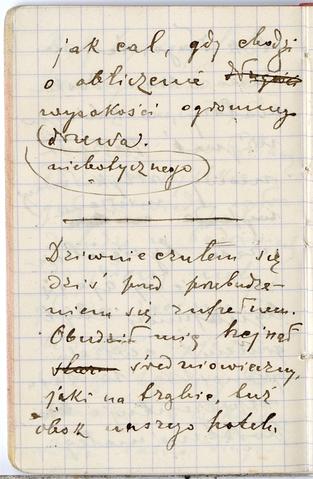 jak cal, gdy chodzi
o obliczenie
wysokości ogromnego
drzewa.
niebotycznego
Dziwnie czułem się
dziś przed przebudze-
niem się zupełnem.
Obudził mię hejnał
średniowieczny,
jaki na trąbie, tuż
obok naszego hotelu.